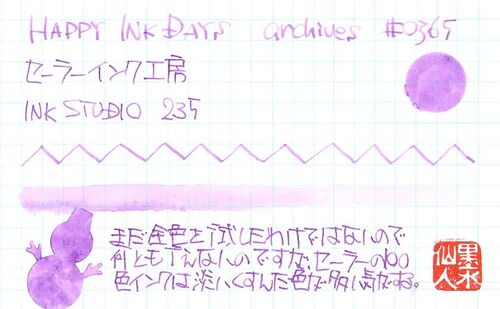 HAPPY INK DAYS archives #0365
セーラーインク工房
INK STUDIO 235
まだ全色を試したわけではないので
何とも言えないのですが、セーラーの100
色インクは淡いくすんだ色が多い気がするね。
黒水
仙人